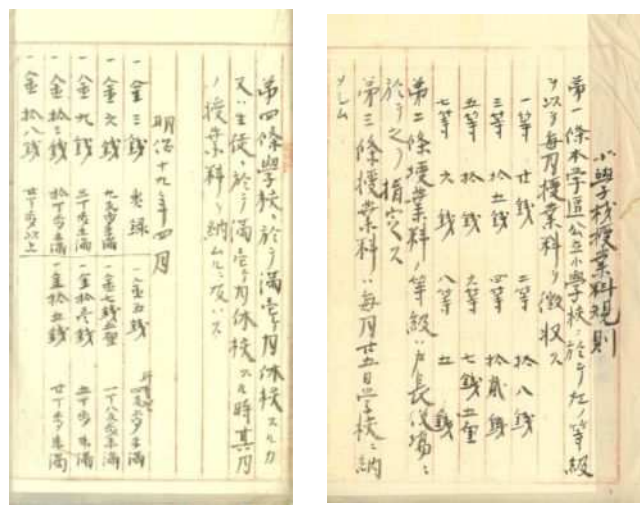 小學校授業料規則
第一條本学區公立小学校ニ於テ左ノ等級
ヲ以テ毎月授業料ヲ徴収ス
一等 廿銭 二等 拾八銭
三等 拾五銭 四等 拾貳銭
五等 拾銭 六等 七銭五厘
七等 六銭 八等 五銭
第二條授業料ノ等級ハ戸長役場ニ
於テ之ヲ指定ス
第三條授業料ハ毎月廿五日学校ニ納
メシム
第四條學校ニ於テ満壱ヶ月休校スルカ
又ハ生徒ニ於テ満壱ヶ月休校スル時其月
ノ授業料ヲ納ムルニ及ハス
明治十九年四月
一金三銭 一金五銭
一金六銭 一金七銭五厘
一金九銭 一金拾弐銭
一金拾弐銭 一金拾五銭
一金拾八銭